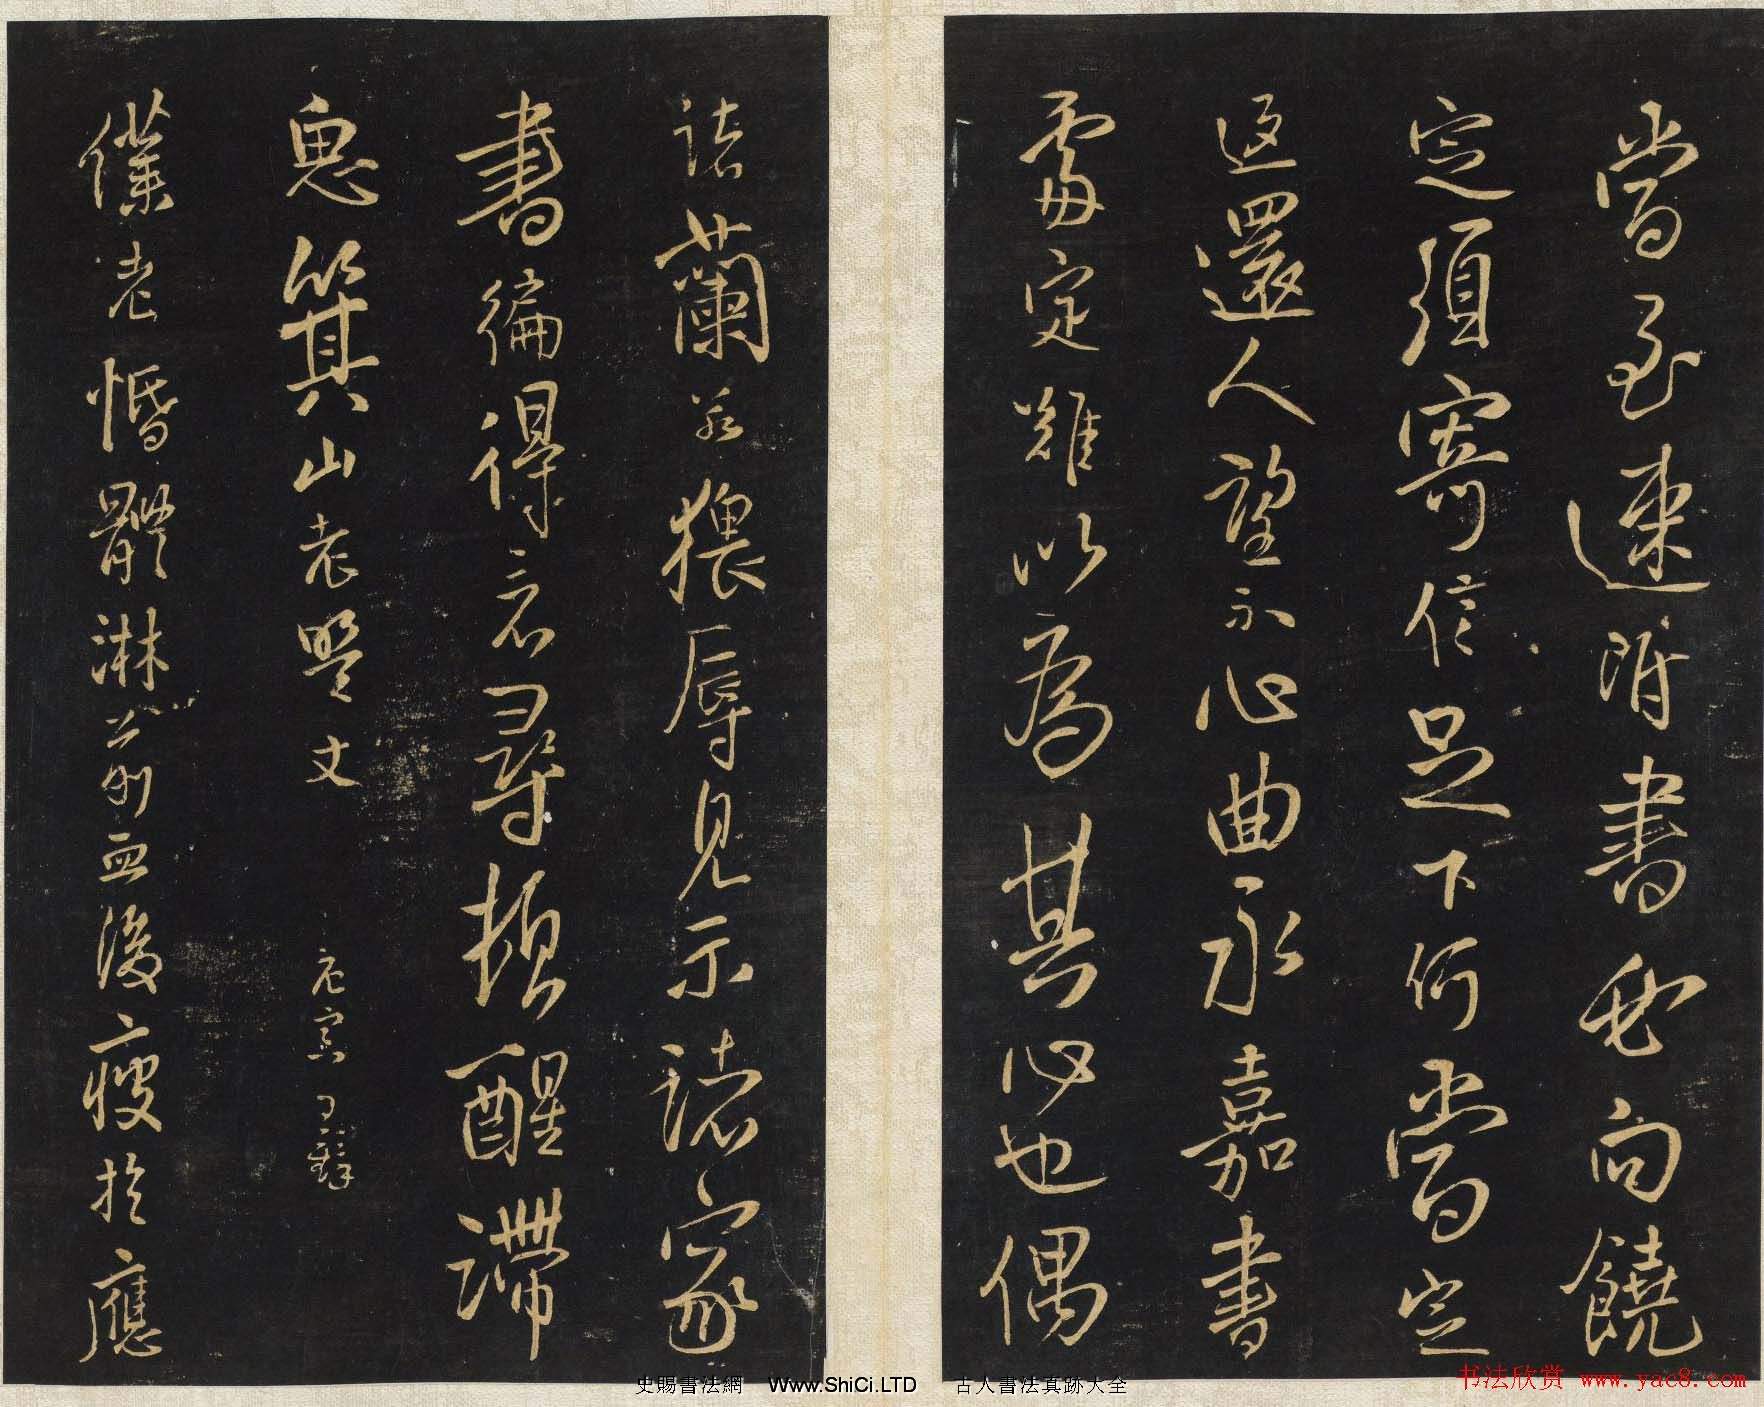 當至速附書也向饒
定須寄信足下何當定
返還人望示心曲承嘉書
處定難以為其心也偶
諸蘭若猥辱見示諸家
書徧得意尋頓醒滯
思箕山老
文
僕老惛體淋
血後瘦於應
史賜書法網 Www.ShiCi.LTD 古人書法真跡大全
书法欣赏 www.yac8.com